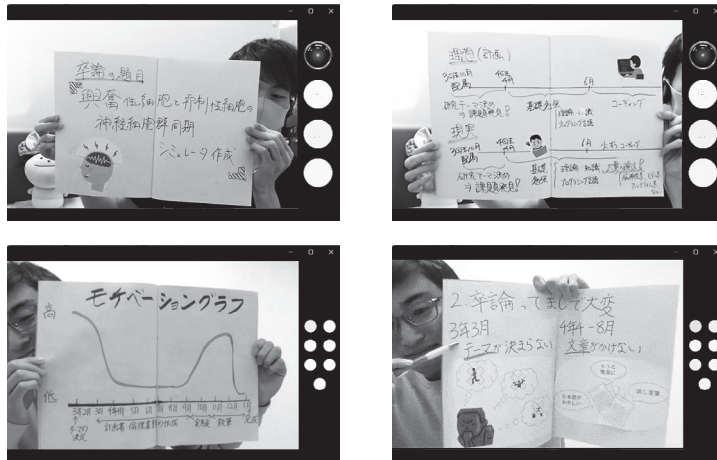 卒論の題目
興奮性細胞と非利性細胞の
神経細胞群同期
シミュレータ作成
理想(計画)
3年生10月
配属
4年生
4月
6月
研究テーマ決め
⇒課題発見!
基礎勉強
理論 知識
プログラミング言語
コーディング
現実
3年生10月
配属
4年生
4月
6月
研究テーマ決め
⇒課題発見!
基礎
勉強
理論 知識
プログラミング言語
モチベーショングラフ
高
低
3年2月 3月 4年4月 5月 6月 7月 8月 9月 10月 11月 12月 1月
テーマの
決定
計画書・倫理書類の作成
実験
執筆
完成
2.卒論ってまじで大変
3年3月
テーマが決まらない
4年4-8月
文章がかけない
もっと
簡潔に
日本語が
おかしい
話し言葉